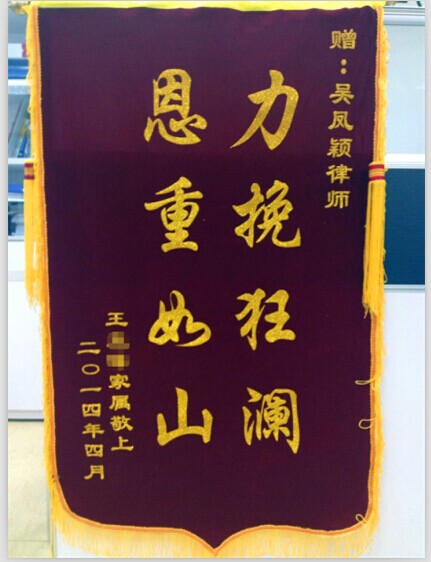 赠：吴凤颖律师
力挽狂澜
恩重如山
王家属敬上
二〇一四年四月